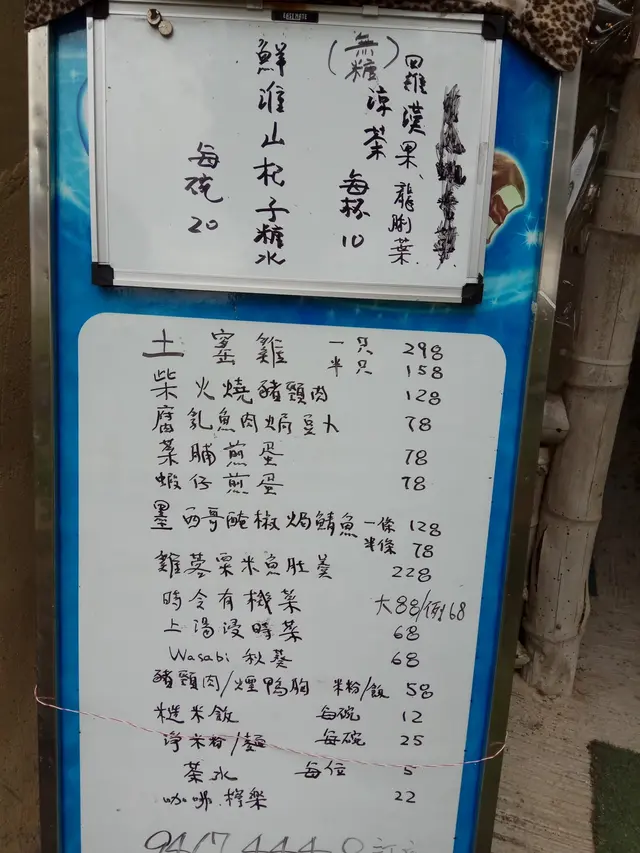 羅漢果、龍脷葉
(無糖)涼茶 每杯10
鮮淮山杞子糖水
每碗20
土窰雞 一只 298
半只 158
柴火燒豬頸肉 128
腐乳魚肉焗豆卜 78
菜脯煎蛋 78
蝦仔煎蛋 78
墨西哥醃椒焗鯖魚 一條 128
半條 78
雞蓉粟米魚肚羹 228
時令有機菜 大88/例68
上湯浸時菜 68
Wasabi 秋葵 68
豬頸肉/煙鴨胸 米粉/飯 58
糙米飯 每碗 12
淨米粉/麵 每碗 25
茶水 每位 5
咖啡.檸樂 22